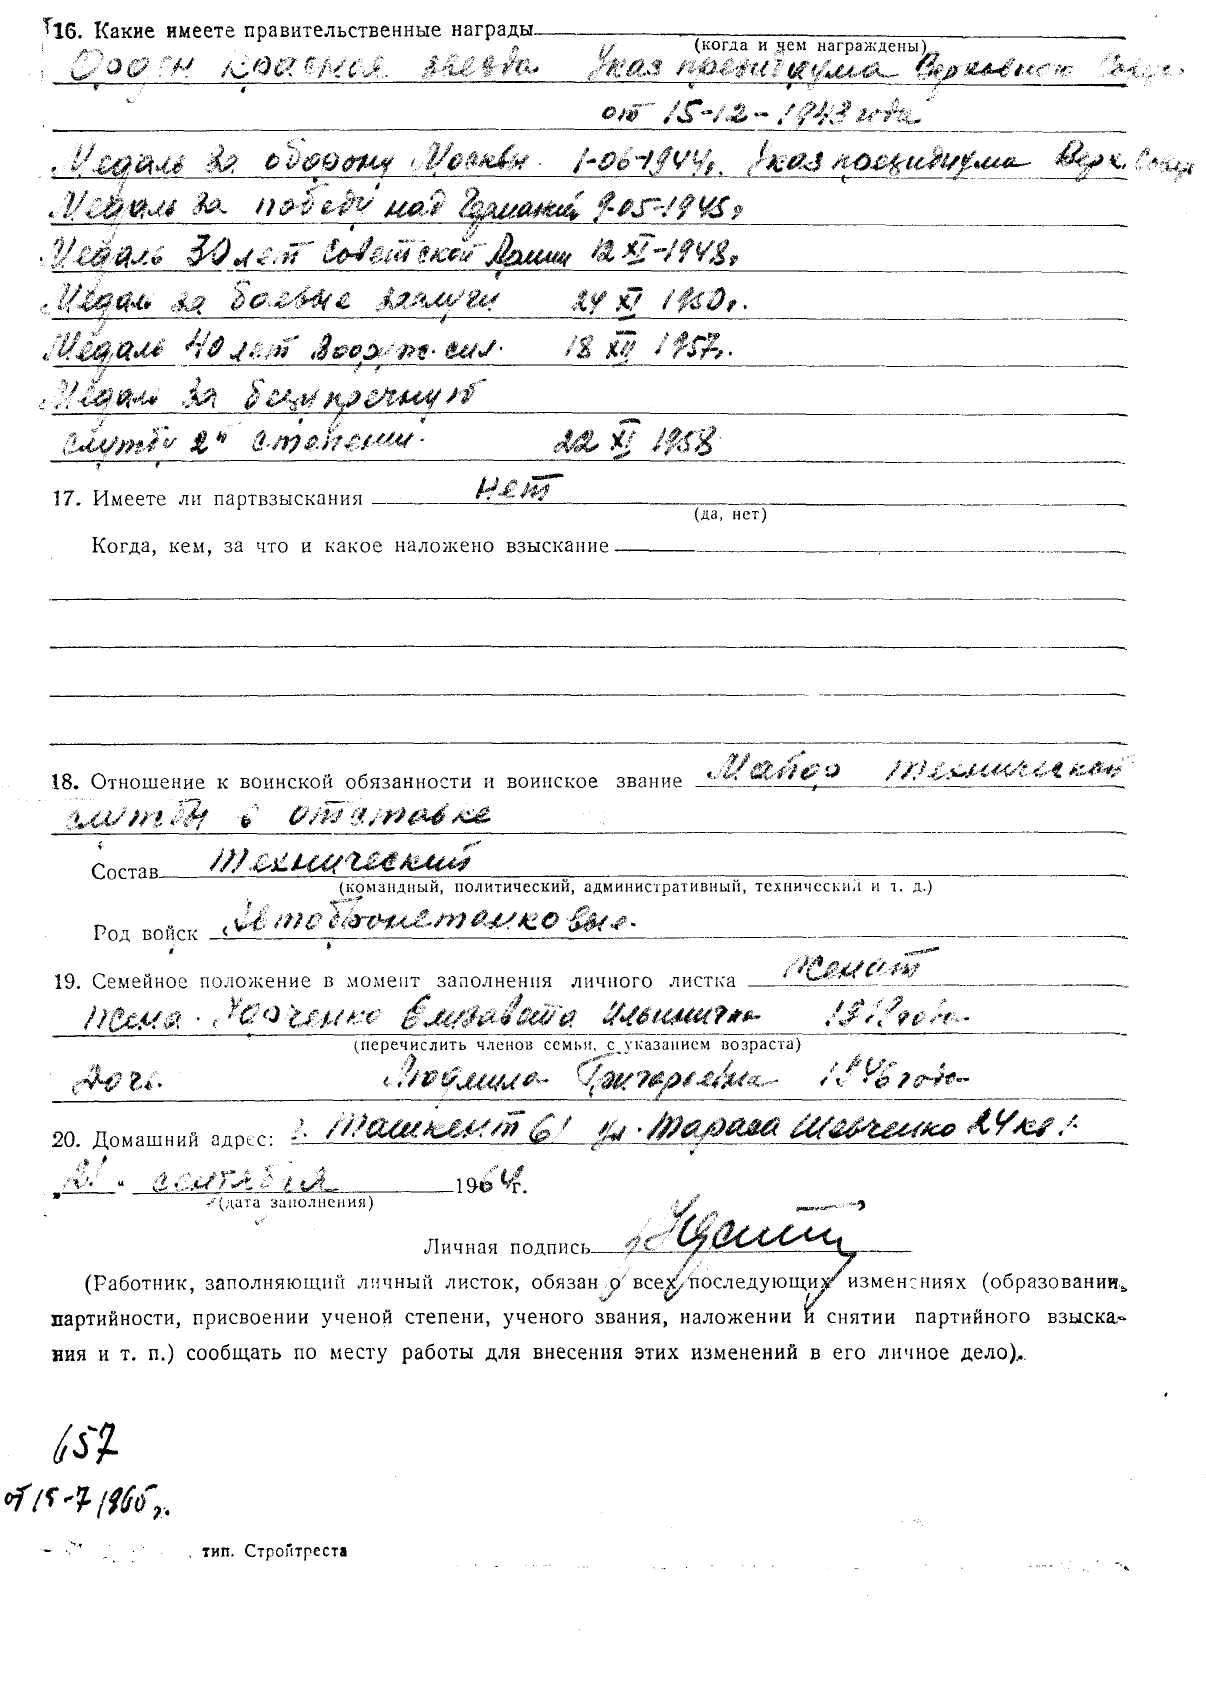 16. Какие имеете правительственные награды
(когда и чем награждены)
Орден красная звезда Указ президиума Верховного
от 15-12-1943 года
Медаль за оборону Москвы 1-06-1944г. Указ президиума Верх. Совета
Медаль за победу над Германией 9-05-1945г
Медаль 30 лет Советской Армии 12 XI-1948г
Медаль за боевые заслуги 24 XI 1950г.
Медаль 40 лет Вооруж. сил. 18 XII 1957г.
Медаль за безупречную
службу 2й степени. 22 XI 1958
17. Имеете ли партвзыскания нет
(да, нет)
Когда, кем, за что и какое наложено взыскание
18. Отношение к воинской обязанности и воинское звание Майор технической
службы в отставке
Состав технический
(командный, политический, административный, технический и т. д.)
Род войск Автобронетанковые.
19. Семейное положение в момент заполнения личного листка женат
жена. Харченко Елизавета Ильинична года
(перечислить членов семьи, с указанием возраста)
дочь. Людмила Григорьевна 1946 года
20. Домашний адрес: г. Ташкент 61 ул. Тараса Шевченко 24 кв 1.
21 " сентября 1964г.
(дата заполнения)
Личная подпись
(Работник, заполняющий личный листок, обязан о всех последующих изменениях (образовании,
партийности, присвоении ученой степени, ученого звания, наложении и снятии партийного взыска-
ния и т. п.) сообщать по месту работы для внесения этих изменений в его личное дело).
657
от 15-7 1965г.
тип. Стройтреста